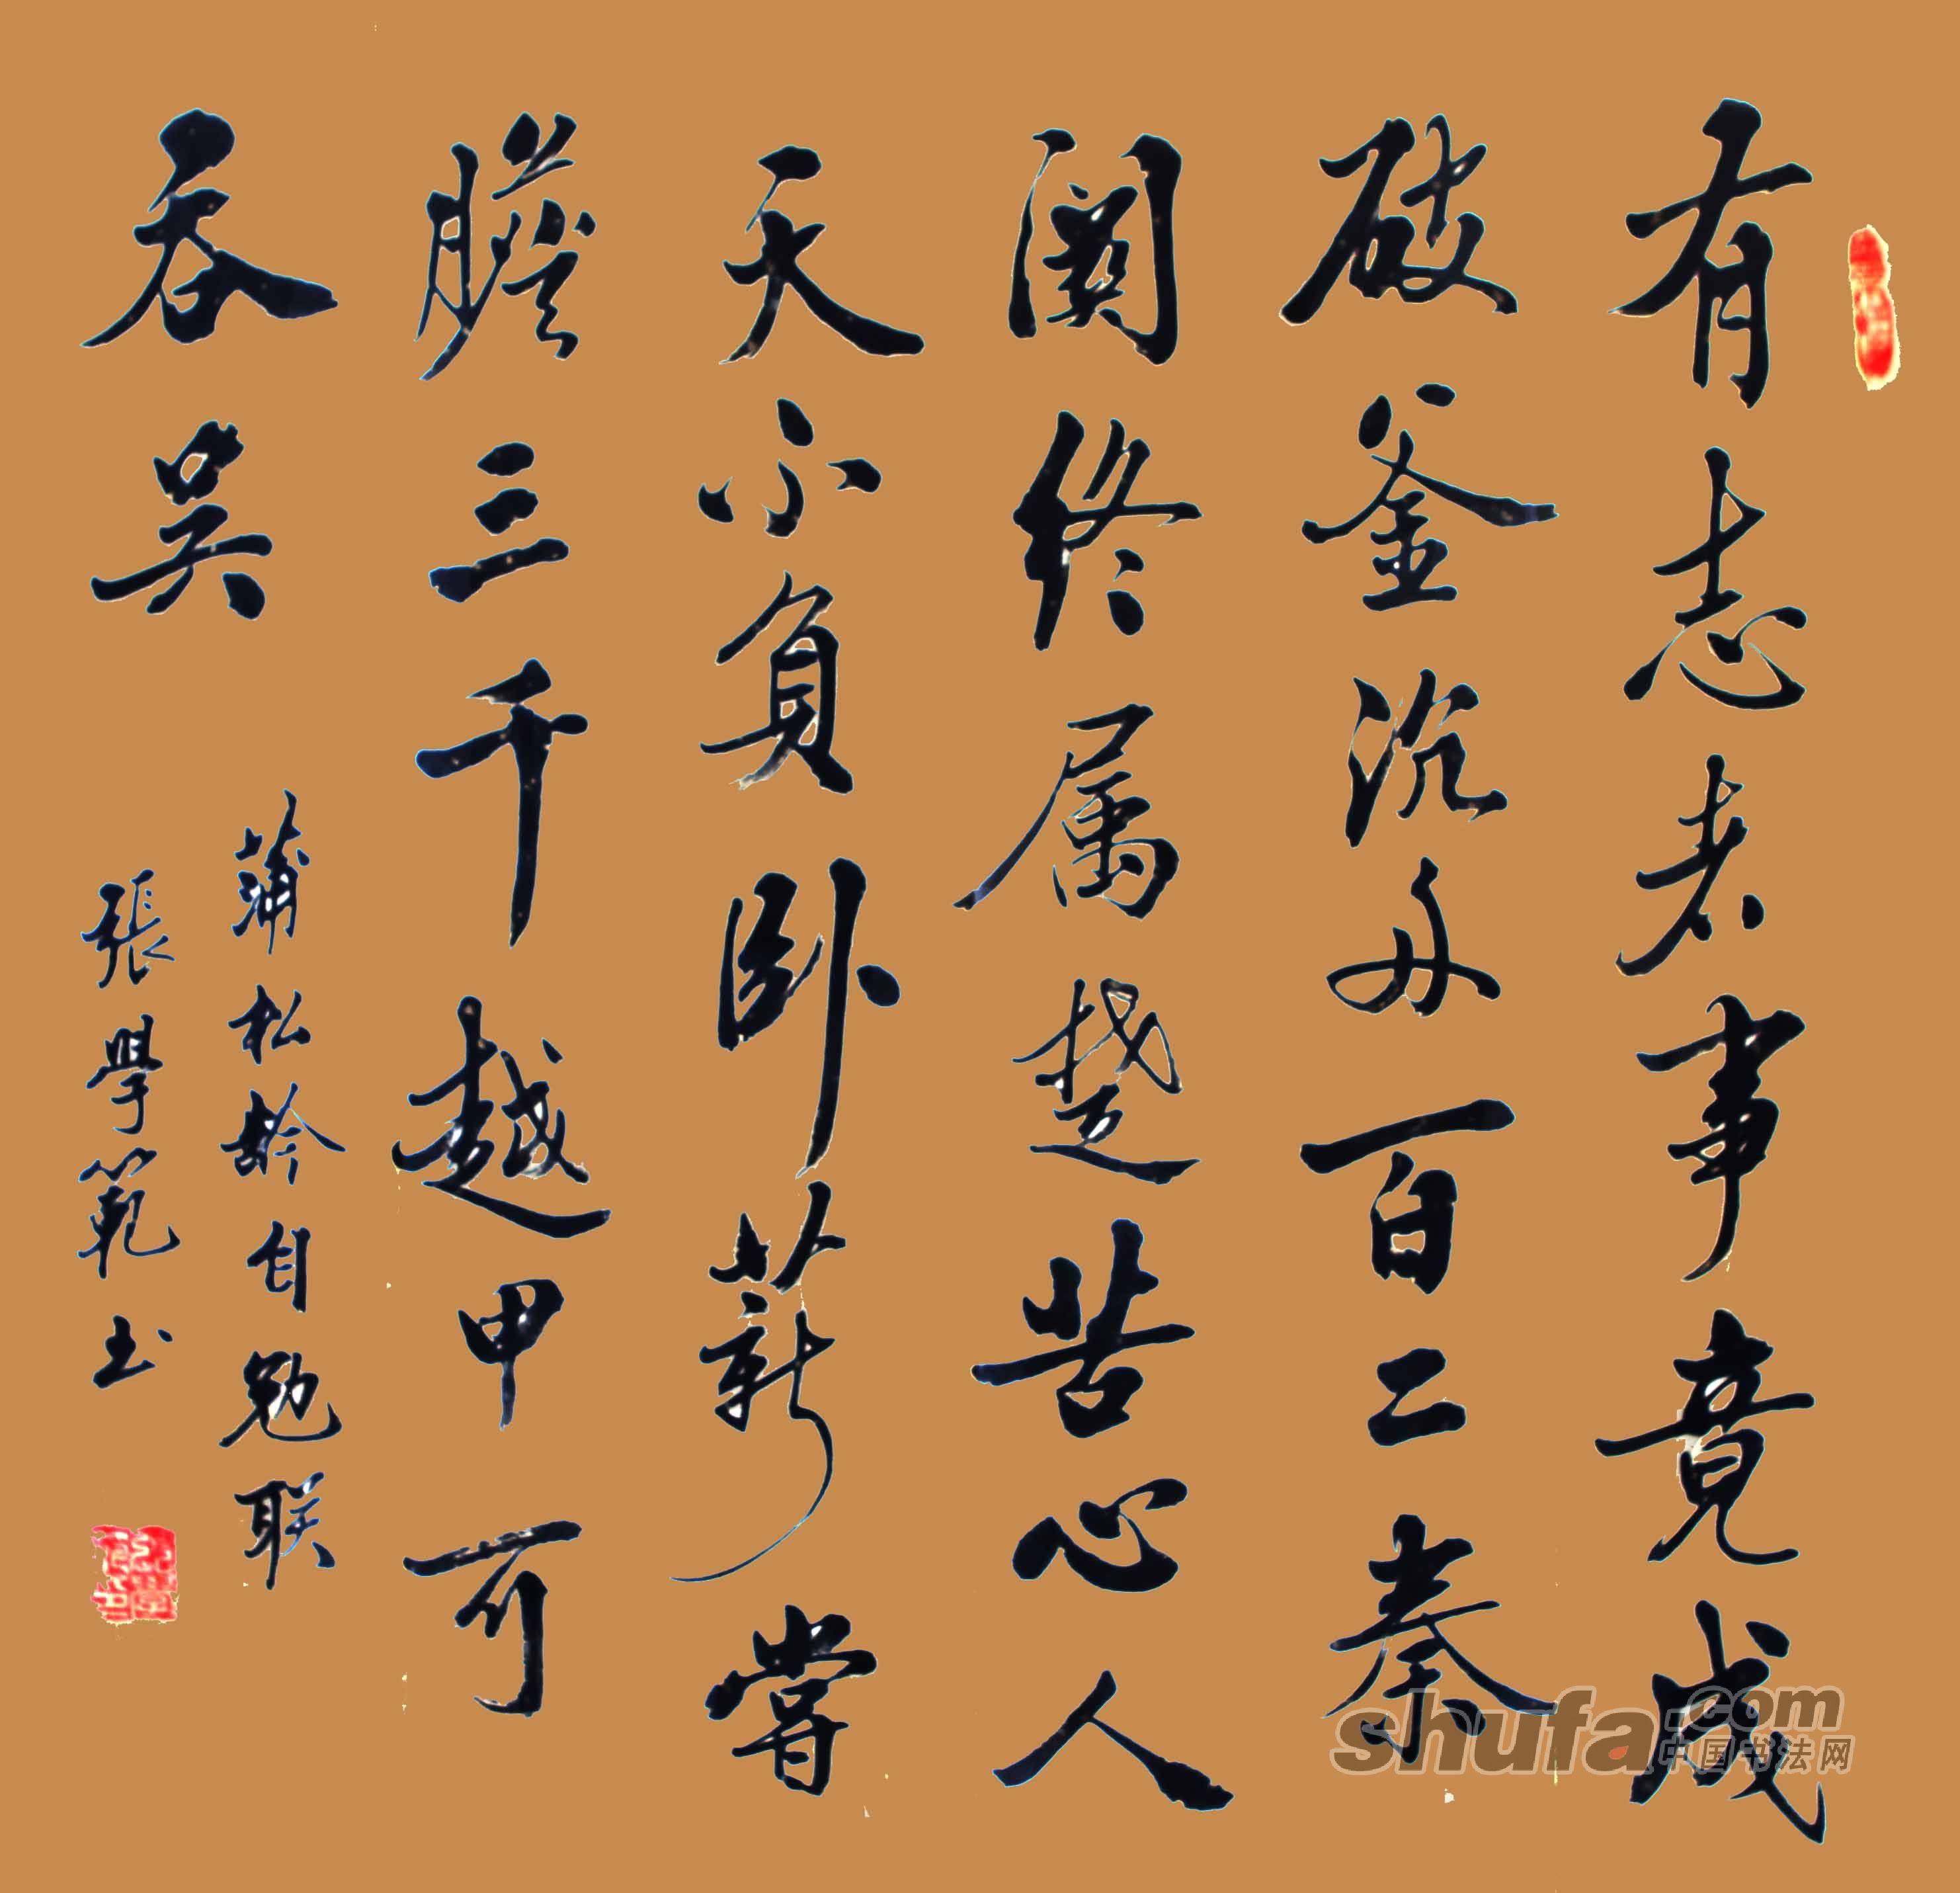 有志者事竟成
破釜沉舟百二秦
關终属楚苦心人
天不負卧薪嘗
膽三千越甲可
吞吴
蒲松龄自勉联
張學範书
shufa.com
中国书法网